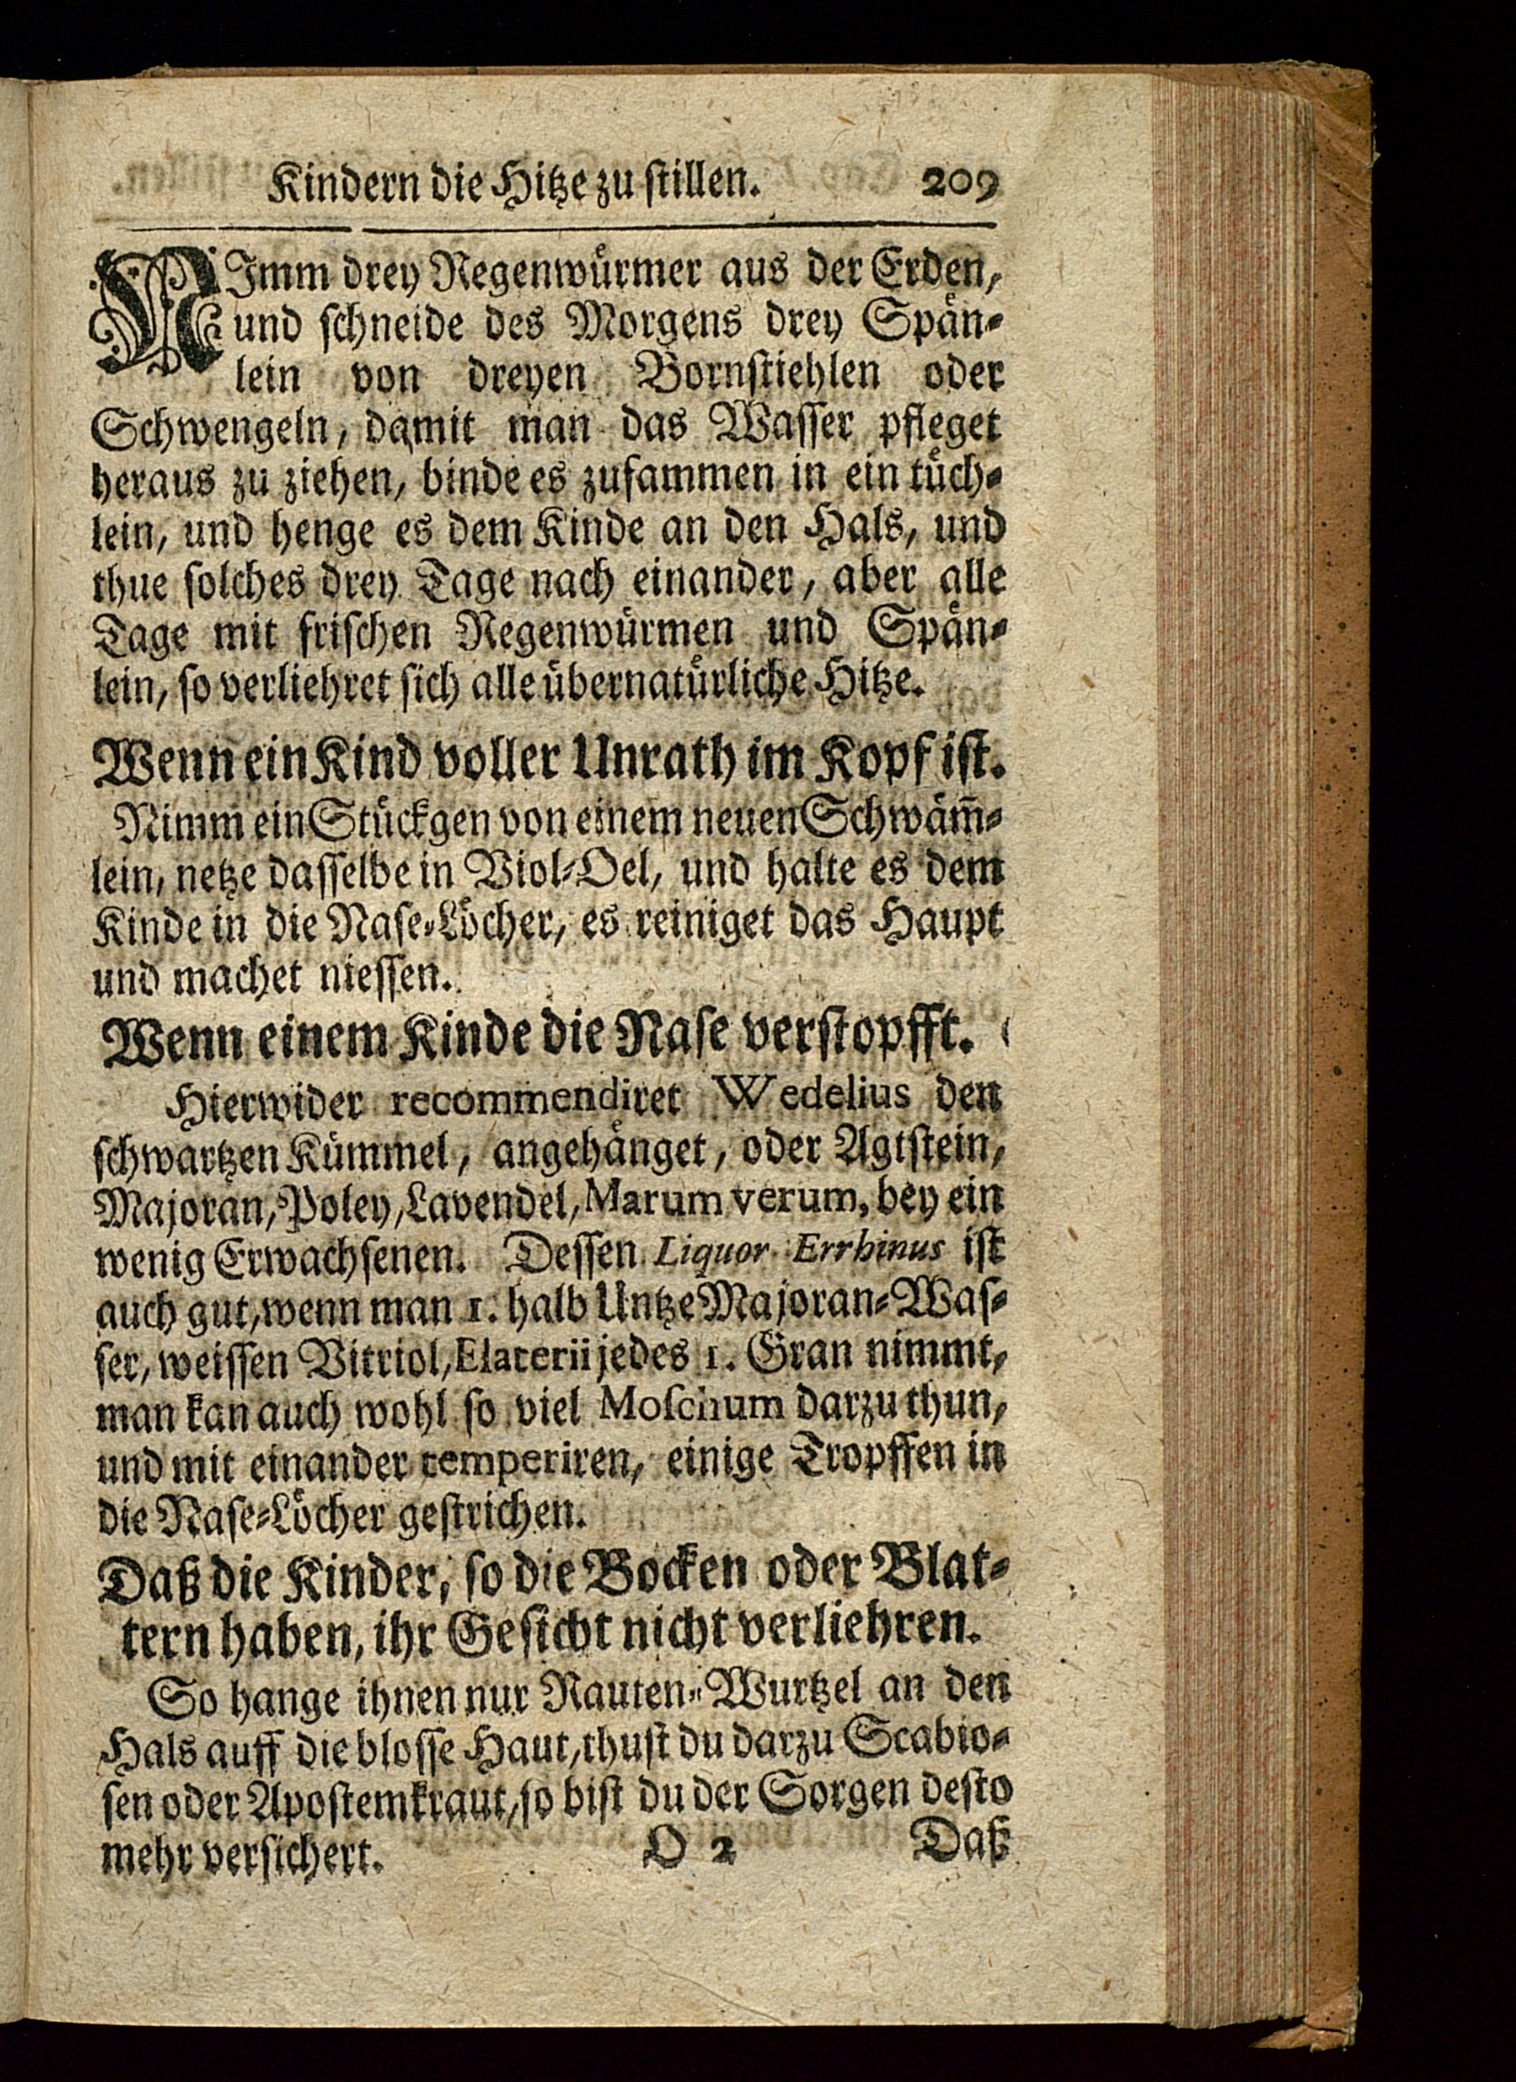 Kindern die Hitze zu stillen. 209
NImm drey Regenwürmer aus der Erden,
und schneide des Morgens drey Spän-
lein von dreyen Bornstiehlen oder
Schwengeln, damit man das Wasser pfleget
heraus zu ziehen, binde es zusammen in ein tüch-
lein, und henge es dem Kinde an den Hals, und
thue solches drey Tage nach einander, aber alle
Tage mit frischen Regenwürmen und Spän-
lein, so verliehret sich alle übernatürliche Hitze.
Wenn ein Kind voller Unrath im Kopf ist.
Nimm ein Stückgen von einem neuen Schwäm̃-
lein, netze dasselbe in Viol-Oel, und halte es dem
Kinde in die Nase-Löcher, es reiniget das Haupt
und machet niessen.
Wenn einem Kinde die Nase verstopfft.
Hierwider recommendiret Wedelius den
schwartzen Kümmel, angehänget, oder Agtstein,
Majoran, Poley, Lavendel, Marum verum, bey ein
wenig Erwachsenen. Dessen Liquor Errhinus ist
auch gut, wenn man 1. halb Untze Majoran-Was-
ser, weissen Vitriol, Elaterii jedes 1. Gran nimmt,
man kan auch wohl so viel Moschum darzu thun,
und mit einander temperiren, einige Tropffen in
die Nase-Löcher gestrichen.
Daß die Kinder, so die Bocken oder Blat-
tern haben, ihr Gesicht nicht verliehren.
So hange ihnen nur Rauten-Wurtzel an den
Hals auff die blosse Haut, thust du darzu Scabio-
sen oder Apostemkraut, so bist du der Sorgen desto
mehr versichert. O 2 Daß